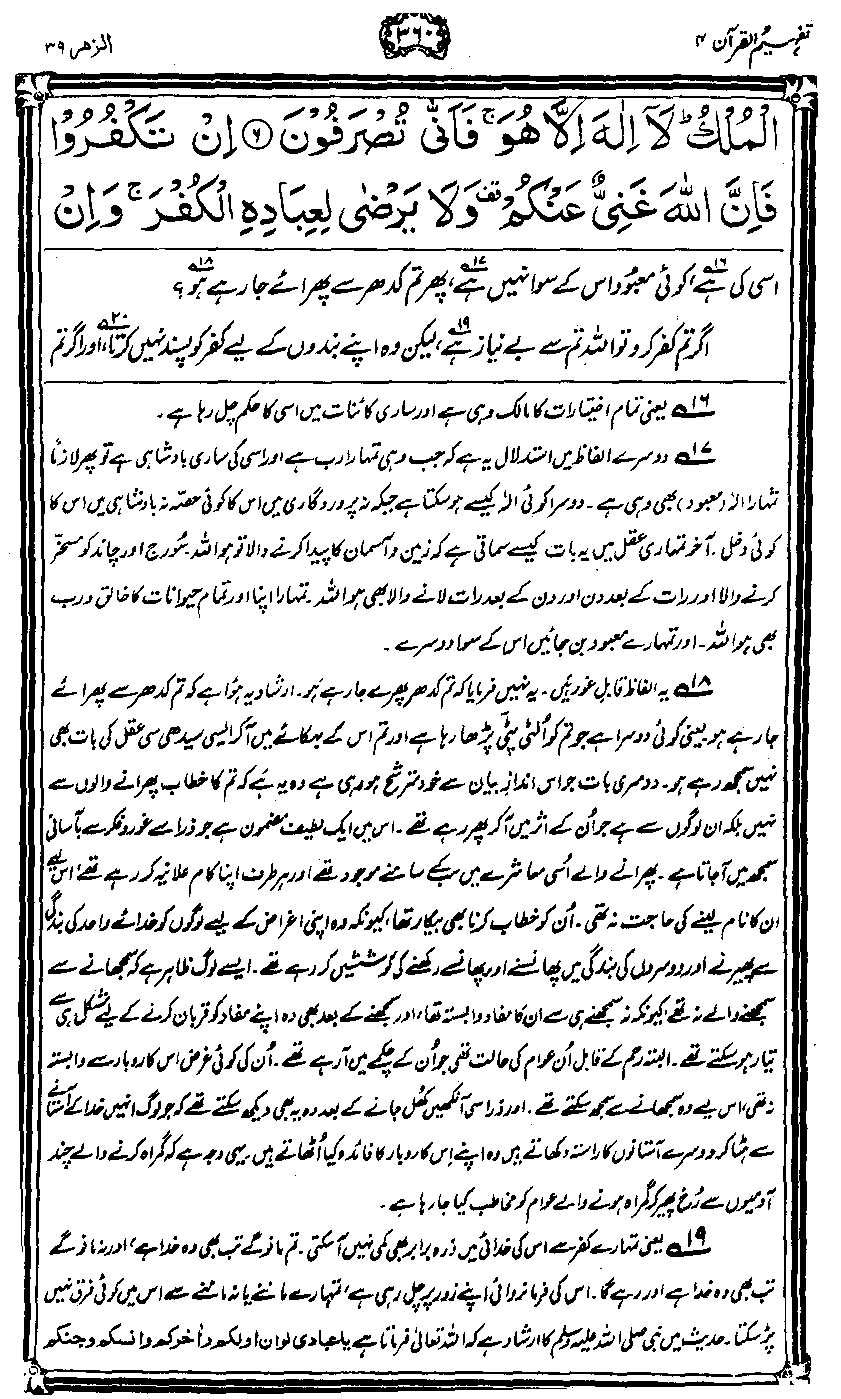 تفہیم القرآن ۴
۳۶۰
الزمر ۳۹
الْمُلْكُ ؕ لَاۤ اِلٰهَ اِلَّا هُوَ ۚ فَاَنّٰى تُصْرَفُوْنَ ﴿۶﴾ اِنْ تَكْفُرُوْا
فَاِنَّ اللّٰهَ غَنِیٌّ عَنْكُمْ ۫ وَلَا یَرْضٰى لِعِبَادِهِ الْكُفْرَ ۚ وَاِنْ
اسی کی ہے،۱۶ کوئی معبود اس کے سوا نہیں ہے،۱۷ پھر تم کدھر سے پھرائے جا رہے ہو۱۸؟
اگر تم کفر کرو تو اللہ تم سے بے نیاز ہے،۱۹ لیکن وہ اپنے بندوں کے لیے کفر کو پسند نہیں کرتا،۲۰ اور اگر تم
۱۶ یعنی تمام اختیارات کا مالک وہی ہے اور ساری کائنات میں اسی کا حکم چل رہا ہے۔
۱۷ دوسرے الفاظ میں استدلال یہ ہے کہ جب وہی تمہارا رب ہے اور اسی کی ساری بادشاہی ہے تو پھر لازماً
تمہارا الٰہ (معبود) بھی وہی ہے۔ دوسرا کوئی الٰہ کیسے ہو سکتا ہے جبکہ نہ پروردگاری میں اس کا کوئی حصہ نہ بادشاہی میں اس کا
کوئی دخل۔ آخر تمہاری عقل میں یہ بات کیسے سماتی ہے کہ زمین و آسمان کا پیدا کرنے والا تو ہو اللہ۔ سورج اور چاند کو مسخر
کرنے والا اور رات کے بعد دن اور دن کے بعد رات لانے والا بھی ہو اللہ۔ تمہارا اپنا اور تمام حیوانات کا خالق و رب
بھی ہو اللہ۔ اور تمہارے معبود بن جائیں اس کے سوا دوسرے۔
۱۸ یہ الفاظ قابلِ غور ہیں۔ یہ نہیں فرمایا کہ تم کدھر پھرے جا رہے ہو۔ ارشاد یہ ہوا ہے کہ تم کدھر سے پھرائے
جا رہے ہو یعنی کوئی دوسرا ہے جو تم کو اُلٹی پٹی پڑھا رہا ہے اور تم اس کے بہکائے میں آ کر ایسی سیدھی سی عقل کی بات بھی
نہیں سمجھ رہے ہو۔ دوسری بات جو اس اندازِ بیان سے خود مترشح ہو رہی ہے وہ یہ ہے کہ تم کا خطاب پھرانے والوں سے
نہیں بلکہ ان لوگوں سے ہے جو اُن کے اثر میں آ کر پھر رہے تھے۔ اس میں ایک لطیف مضمون ہے جو ذرا سے غور و فکر سے بآسانی
سمجھ میں آ جاتا ہے۔ پھرانے والے اُسی معاشرے میں سب کے سامنے موجود تھے اور ہر طرف اپنا کام علانیہ کر رہے تھے، اس لیے
ان کا نام لینے کی حاجت نہ تھی۔ اُن کو خطاب کرنا بھی بیکار تھا، کیونکہ وہ اپنی اغراض کے لیے لوگوں کو خدائے واحد کی بندگی
سے پھیرنے اور دوسروں کی بندگی میں پھانسنے اور پھانسے رکھنے کی کوششیں کر رہے تھے۔ ایسے لوگ ظاہر ہے کہ سمجھانے سے
سمجھنے والے نہ تھے، کیونکہ نہ سمجھنے ہی سے ان کا مفاد وابستہ تھا، اور سمجھنے کے بعد بھی وہ اپنے مفاد کو قربان کرنے کے لیے مشکل ہی سے
تیار ہو سکتے تھے۔ البتہ رحم کے قابل اُن عوام کی حالت تھی جو اُن کے چکمے میں آ رہے تھے۔ اُن کی کوئی غرض اس کاروبار سے وابستہ
نہ تھی، اس لیے وہ سمجھانے سے سمجھ سکتے تھے۔ اور ذرا سی آنکھیں کھل جانے کے بعد وہ یہ بھی دیکھ سکتے تھے کہ جو لوگ انہیں خدا کے آستانے
سے ہٹا کر دوسرے آستانوں کا راستہ دکھاتے ہیں وہ اپنے اِس کاروبار کا فائدہ کیا اُٹھاتے ہیں۔ یہی وجہ ہے کہ گمراہ کرنے والے چند
آدمیوں سے رُخ پھیر کر گمراہ ہونے والے عوام کو مخاطب کیا جا رہا ہے۔
۱۹ یعنی تمہارے کفر سے اس کی خدائی میں ذرہ برابر بھی کمی نہیں آ سکتی۔ تم مانو گے تب بھی وہ خدا ہے، اور نہ مانو گے
تب بھی وہ خدا ہے اور رہے گا۔ اس کی فرمانروائی اپنے زور پر چل رہی ہے، تمہارے ماننے یا نہ ماننے سے اس میں کوئی فرق نہیں
پڑ سکتا۔ حدیث میں نبی صلی اللہ علیہ وسلم کا ارشاد ہے کہ اللہ تعالیٰ فرماتا ہے یا عبادی لو ان اولکم و اٰخرکم و انسکم و جنکم